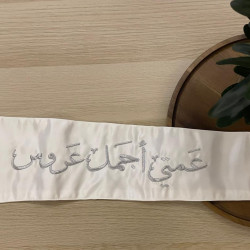 عمتي أجمل عروس